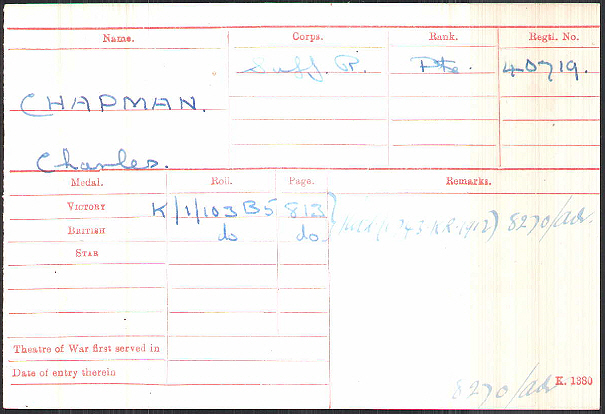 Name. Corps. Rank. Regtl. No.
Suff. R. Pte. 40719.
CHAPMAN.
Charles.
Medal. Roll. Page. Remarks.
VICTORY K/1/103 B5 813
BRITISH do do. (1743. KR. 1912) 8270/adv.
STAR
Theatre of War first served in
Date of entry therein
8270/adv K. 1380